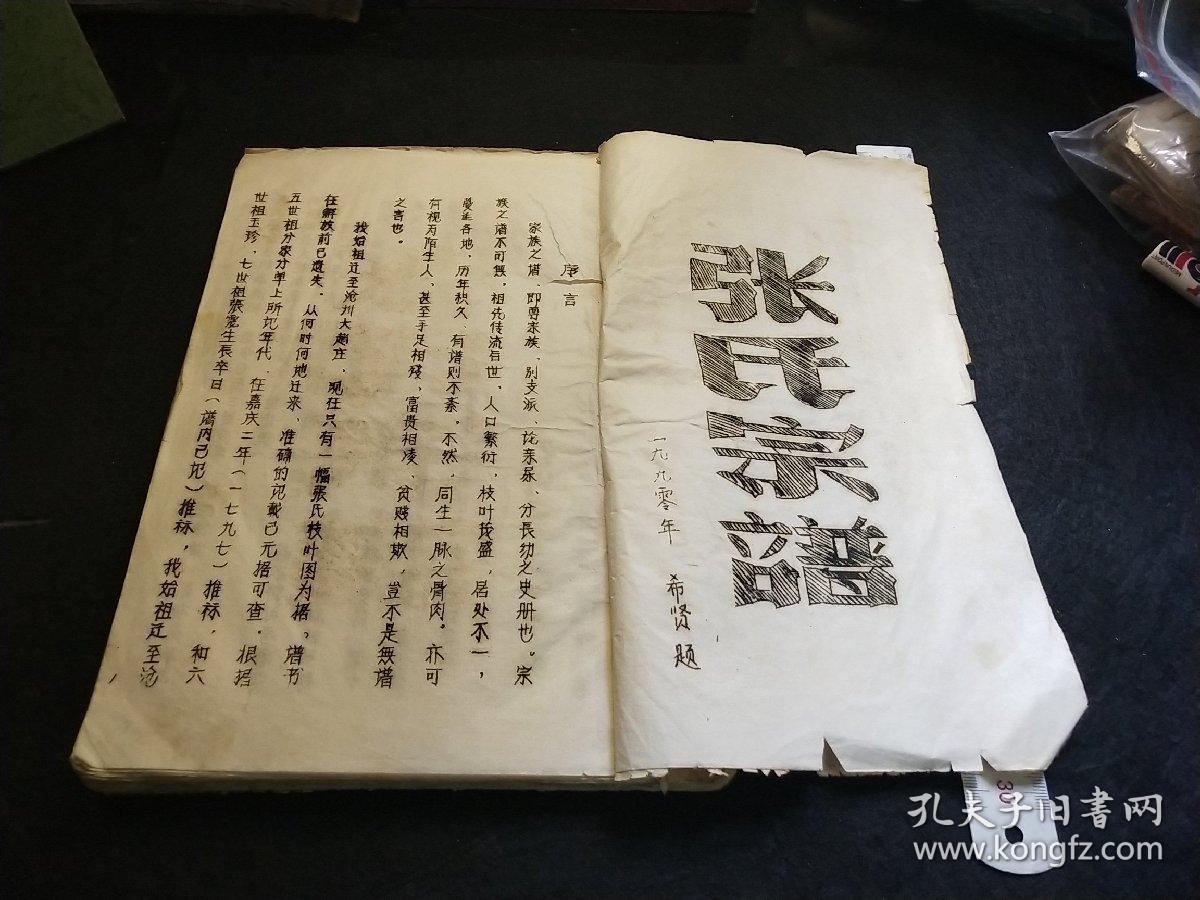 张氏宗谱
一九九零年 希贤题
序言
家族之谱、即尊家族、别支派、论亲疏、分長幼之史册也。宗
族之谱不可無，祖先传流后世，人口繁衍，枝叶茂盛，居处不一，
蔓延各地，历年积久、有谱则不紊，不然，同生一脉之骨肉。亦可
有视为陌生人、甚至手足相殘，富貴相凌、贫贱相欺，豈不是無谱
之害也。
我始祖迁至沧州大趙庄，现在只有一幅張氏枝叶图为据，谱书
在解放前已遗失，从何时何地迁来、准确的记載已元据可查，根据
五世祖分家分单上所记年代，在嘉庆二年（一七九七）推标，和六
世祖玉珍，七世祖張 生辰卒日（谱内已记）推标，我始祖迁至沧
孔夫子旧书网
www.kongfz.com
30